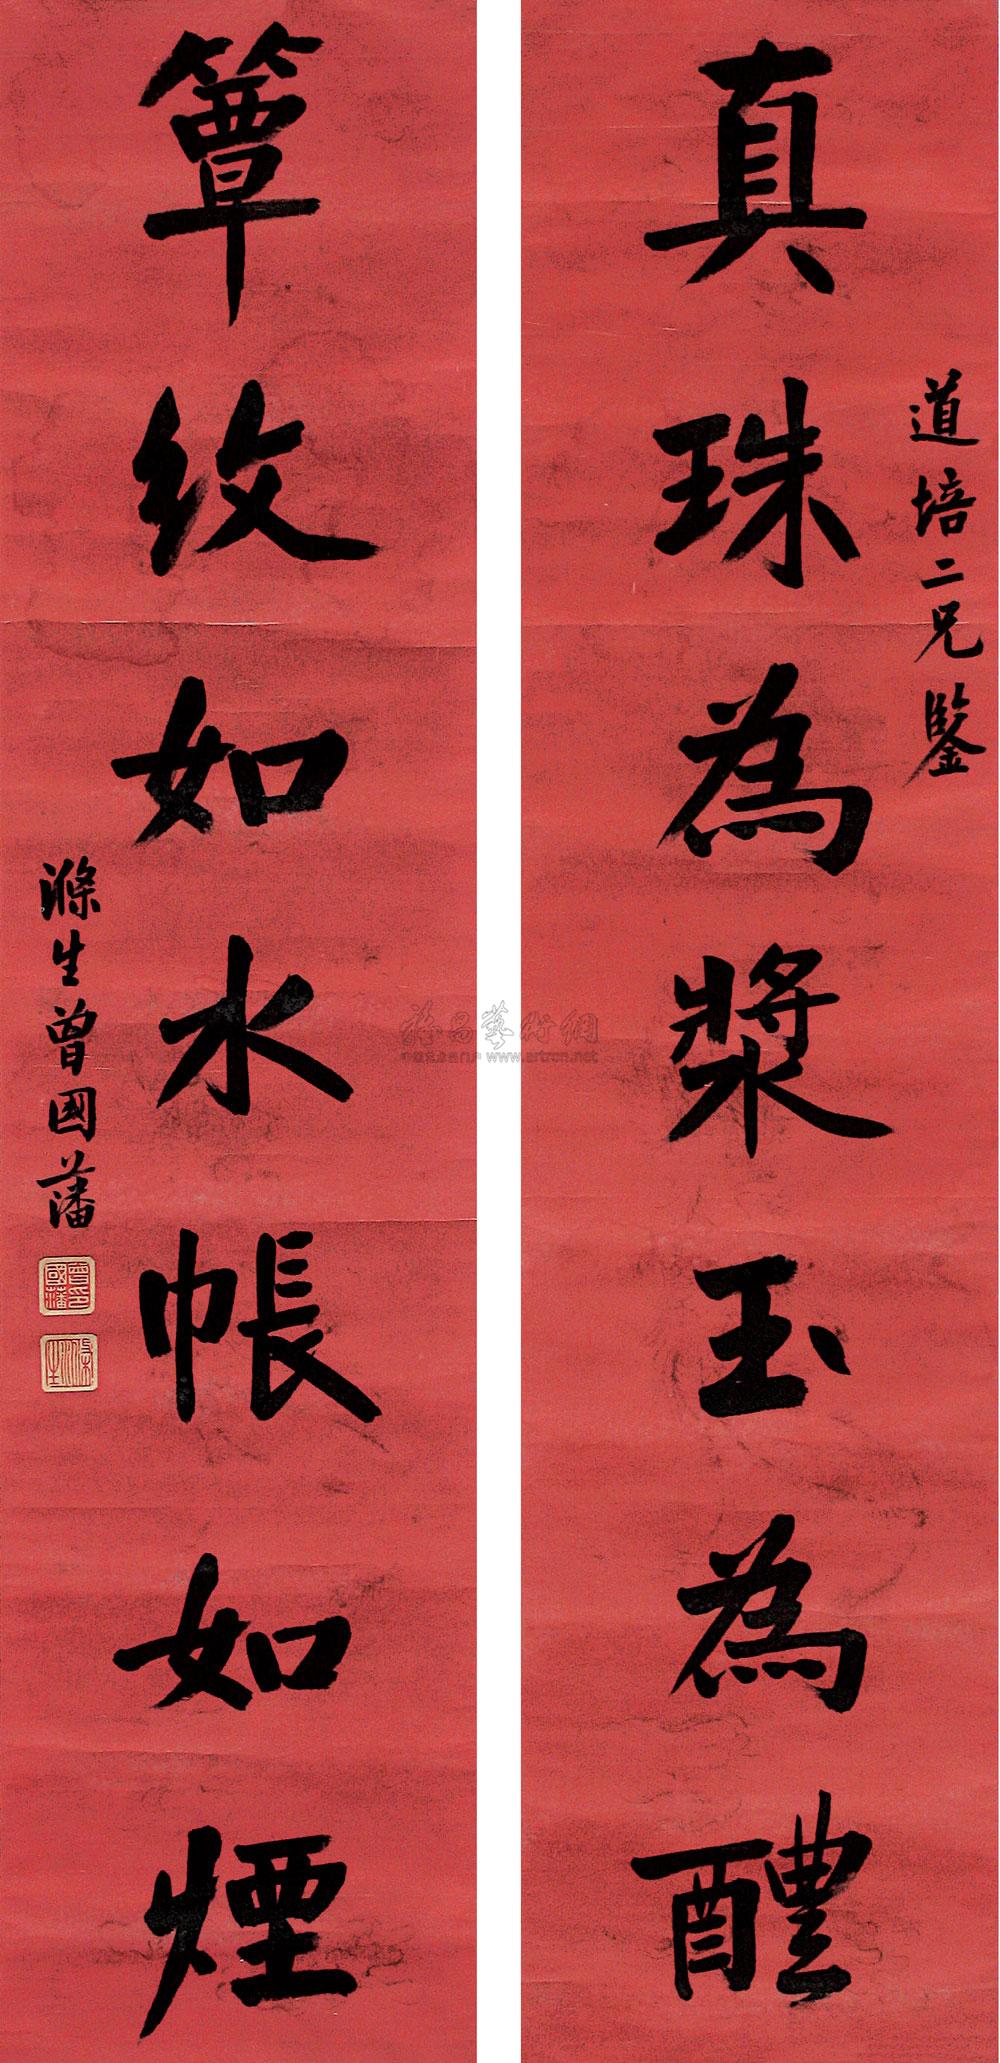 道培二兄鑒
真珠為漿玉為醴
簟紋如水帳如煙
滌生曾國藩
www.artron.net